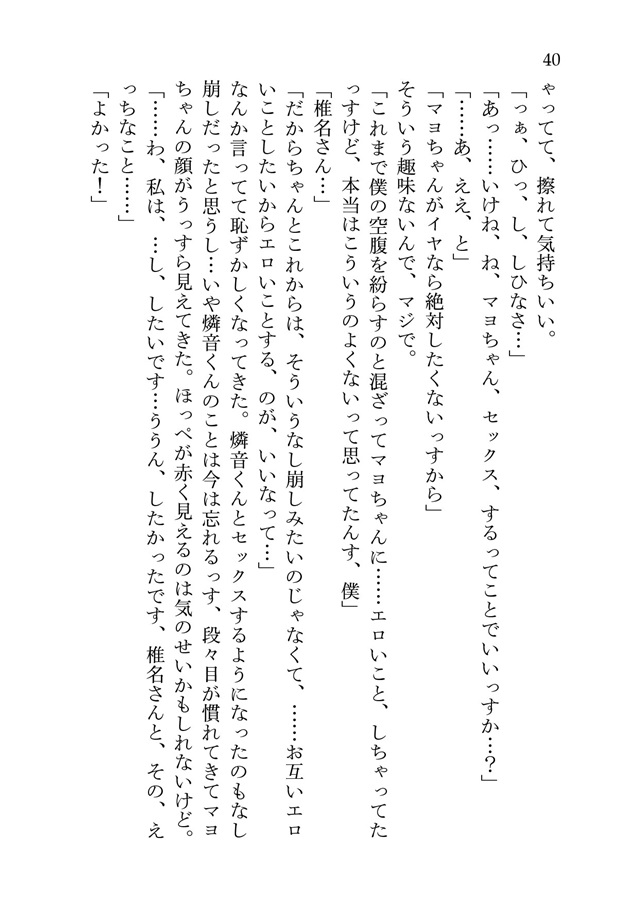 40
ゃってて、擦れて気持ちいい。
「っぁ、ひっ、し、しひなさ…」
「あっ……いけね、ね、マヨちゃん、セックス、するってことでいいっすか…？」
「……あ、ええ、と」
「マヨちゃんがイヤなら絶対したくないっすから」
そういう趣味ないんで、マジで。
「これまで僕の空腹を紛らすのと混ざってマヨちゃんに……エロいこと、しちゃってた
っすけど、本当はこういうのよくないって思ってたんす、僕」
「椎名さん…」
「だからちゃんとこれからは、そういうなし崩しみたいのじゃなくて、……お互いエロ
いことしたいからエロいことする、のが、いいなって…」
なんか言ってて恥ずかしくなってきた。燐音くんとセックスするようになったのもなし
崩しだったと思うし…いや燐音くんのことは今は忘れるっす、段々目が慣れてきてマヨ
ちゃんの顔がうっすら見えてきた。ほっぺが赤く見えるのは気のせいかもしれないけど。
「……わ、私は、…し、したいです…ううん、したかったです、椎名さんと、その、え
っちなこと……」
「よかった！」